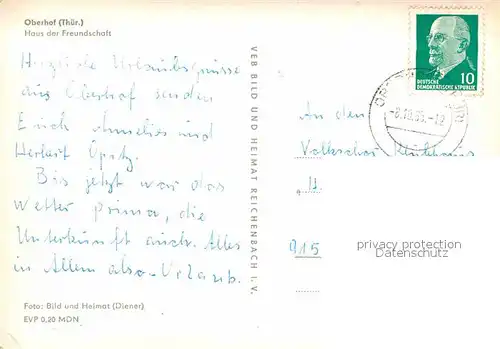 Oberhof (Thür.)
Haus der Freundschaft
Herzliche Urlaubsgrüsse
aus Oberhof senden
Euch Annelies und
Herbert Opitz.
Bis jetzt war das
Wetter prima, die
Unterkunft auch. Alles
in Allem also - Urlaub.
Foto: Bild und Heimat (Diener)
EVP 0,20 MDN
VEB BILD UND HEIMAT REICHENBACH I. V.
10
DEUTSCHE
DEMOKRATISCHE REPUBLIK
An den
915
privacy protection
Datenschutz